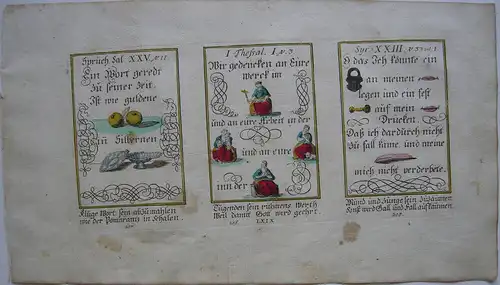 Sprüch Sal XXV, v 11.
Ein Wort geredt
Zu seiner Zeit.
Ist wie guldene
in Silbernen
Kluge Wort sein abzumahlen
wie der Pomerantz in Schalen.
I Thessal. I, v. 3.
Wir gedencken an Eure
werck im
und an eure Arbeit in der
und an eure
inn der
Tugenden sein ruhmens Werth
Weil damit Gott wird geehrt.
LXIX.
Syr. XXIII
O das Ich könnte ein
an meinen
legen und ein fest
auf mein
Drucken.
Daß ich dardurch nicht
Zu fall käme, und meine
mich nicht verderbete.
Mund und Zunge sein Zubawren
Sonst wird Gall und Fall auf lauren